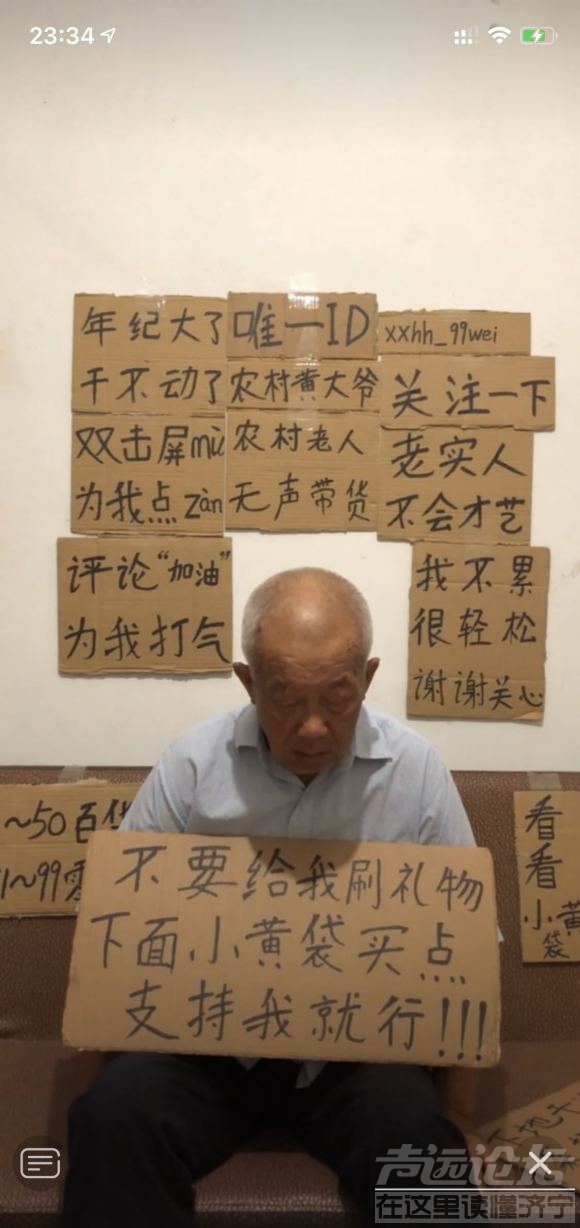 23:34
年纪大了
干不动了
双击屏mù
为我点zàn
唯一ID
农村黄大爷
农村老人
无声带货
xxhh_99wei
关注一下
老实人
不会才艺
评论“加油”
为我打气
我不累
很轻松
谢谢关心
~50百货
1~99零
看
看
小黄
袋
不要给我刷礼物
下面小黄袋买点
支持我就行!!!
声远论坛
在这里读懂济宁